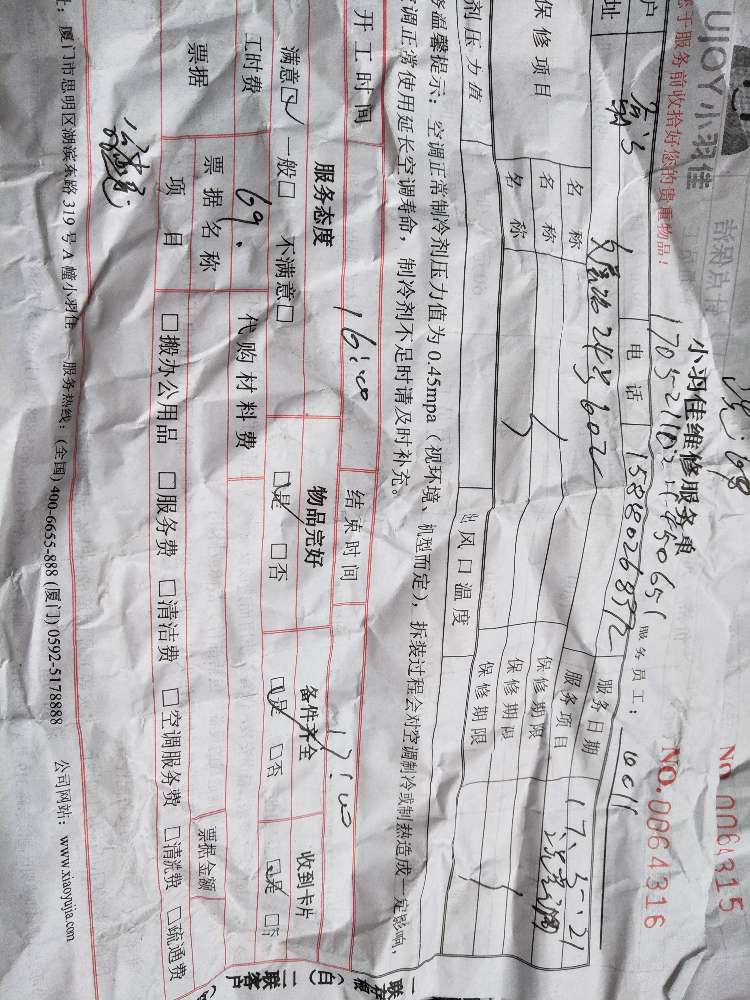 No.0064315
UJOY小羽佳
No.0064316
小羽佳维修服务单
服务员工：6011
于服务前收拾好您的贵重物品！
户
电话 15880268572
服务日期 17.5.21
址
文屏路242号602
服务项目
保修项目
名称
保修期限
名称
保修期限
名称
保修期限
剂压力值
出风口温度
温馨提示：空调正常制冷剂压力值为0.45mpa（视环境、机型而定），拆装过程会对空调制冷或制热造成一定影响，
调正常使用延长空调寿命，制冷剂不足时请及时补充。
开工时间 16:00 结束时间 17:00
服务态度 物品完好 备件齐全 收到卡片
满意☑ 一般□ 不满意□ ☑是 □否 ☑是 □否 ☑是 □否
工时费 69. 代购材料费
票据 票据名称 票据金额
项目 □搬办公用品 □服务费 □清洁费 □空调服务费 □清洗费 □疏通费
：厦门市思明区湖滨东路319号A幢小羽佳 服务热线：(全国)400-6655-888 (厦门)0592-5178888 公司网站：www.xiaoyujia.com